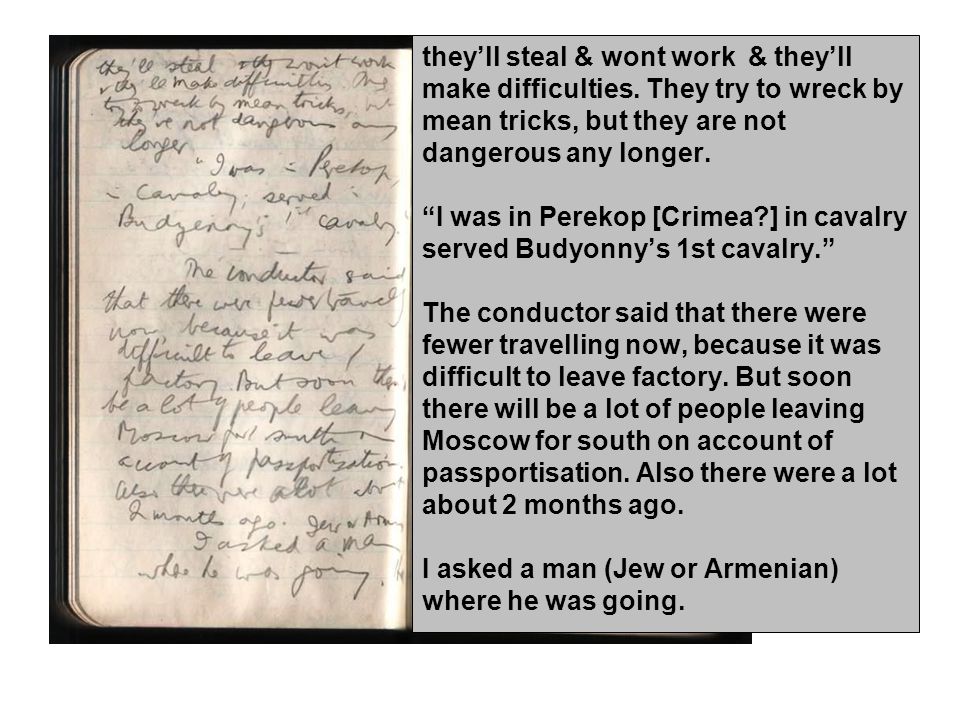 they'll steal & they wont work
& they'll make difficulties. They
try to wreck by mean tricks, but
they're not dangerous any
longer.
"I was in Perekop,
in Cavalry; served in
Budyenny's 1st cavalry.
The conductor said
that there were fewer travell
now, because it was
difficult to leave
factory. But soon there
be a lot of people leaving
Moscow for south on
account of passportisation.
Also there were a lot about
2 months ago. Jew or Arm
I asked a man
where he was going.
they’ll steal & wont work & they’ll
make difficulties. They try to wreck by
mean tricks, but they are not
dangerous any longer.
“I was in Perekop [Crimea?] in cavalry
served Budyonny’s 1st cavalry.”
The conductor said that there were
fewer travelling now, because it was
difficult to leave factory. But soon
there will be a lot of people leaving
Moscow for south on account of
passportisation. Also there were a lot
about 2 months ago.
I asked a man (Jew or Armenian)
where he was going.